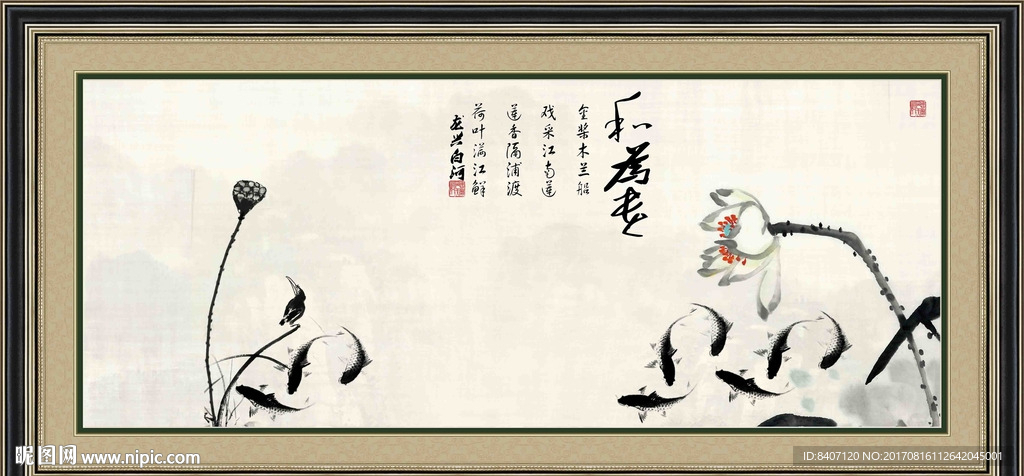 和为贵
金桨木兰船
戏采江南莲
莲香隔浦渡
荷叶满江鲜
昵图网 www.nipic.com
ID:8407120 NO:20170816112642045001